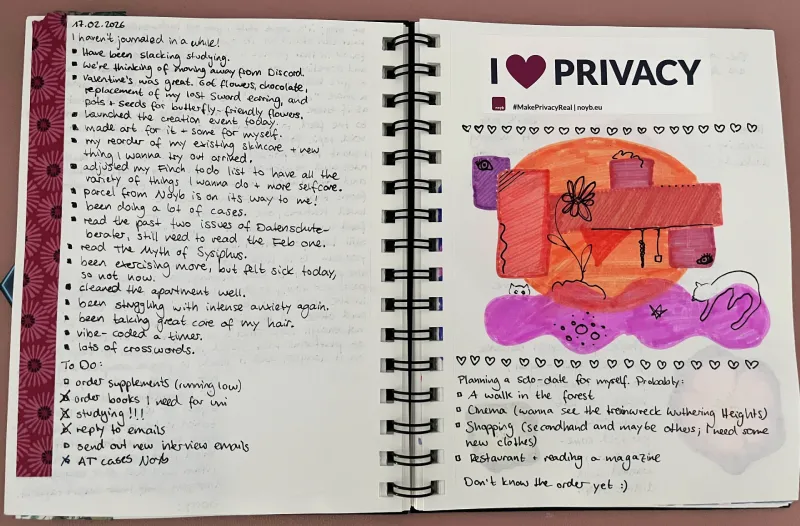 17.02.2026
I haven't journaled in a while!
▪ Have been slacking studying.
▪ we're thinking of moving away from Discord.
▪ Valentine's was great. Got flowers, chocolate,
replacement of my lost Sword earring, and
pots + seeds for butterfly-friendly flowers.
▪ launched the creation event today.
▪ made art for it + some for myself.
▪ my reorder of my existing skincare + new
thing I wanna try out arrived.
▪ adjusted my Finch todo list to have all the
variety of things I wanna do + more selfcare.
▪ parcel from Noyb is on its way to me!
▪ been doing a lot of cases.
▪ read the past two issues of Datenschutz-
berater, still need to read the Feb one.
▪ read The Myth of Sysiphus.
▪ been exercising more, but felt sick today,
so not now.
▪ cleaned the apartment well.
▪ been struggling with intense anxiety again.
▪ been taking great care of my hair.
▪ vibe-coded a timer.
▪ lots of crosswords.
To Do:
☐ order supplies (running low)
☒ order books I need for uni
☒ studying!!!
☒ reply to emails
☐ send out new interview emails
☒ AT cases Noyb
I ♥ PRIVACY
noyb #MakePrivacyReal | noyb.eu
Planning a solo-date for myself. Probably:
☐ A walk in the forest
☐ Cinema (wanna see the trainwreck Wuthering Heights)
☐ Shopping (secondhand and maybe others; I need some
new clothes)
☐ Restaurant + reading a magazine
Don't know the order yet :)